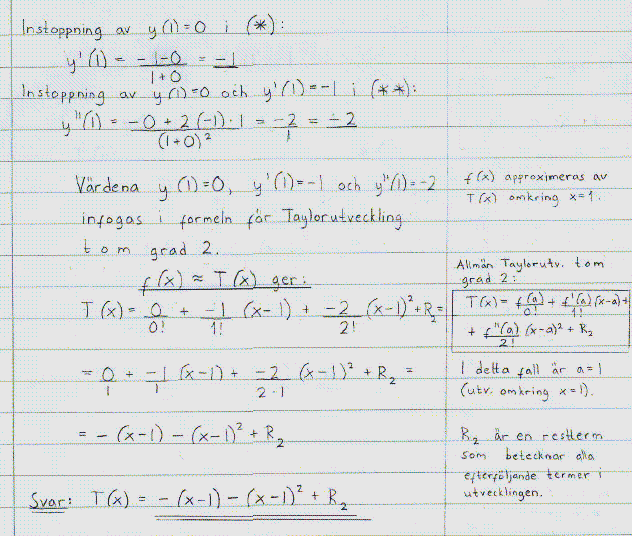 Instoppning av y(1)=0 i (*):
y'(1) = (-1-0)/(1+0) = -1
Instoppning av y(1)=0 och y'(1)=-1 i (**):
y''(1) = (-0+2(-1)·1)/(1+0)² = -2/1 = -2
Värdena y(1)=0, y'(1)=-1 och y''(1)=-2
infogas i formeln för Taylorutveckling
tom grad 2.
f(x) ≈ T(x) ger:
T(x) = 0/0! + -1/1! (x-1) + -2/2! (x-1)² + R₂ =
= 0/1 + -1/1 (x-1) + -2/2·1 (x-1)² + R₂ =
= -(x-1) - (x-1)² + R₂
Svar: T(x) = -(x-1) - (x-1)² + R₂
f(x) approximeras av
T(x) omkring x=1.
Allmän Taylorutv. tom
grad 2:
T(x) = f(a)/0! + f'(a)/1! (x-a) +
+ f''(a)/2! (x-a)² + R₂
I detta fall är a=1
(utv. omkring x=1).
R₂ är en restterm
som betecknar alla
efterföljande termer i
utvecklingen.